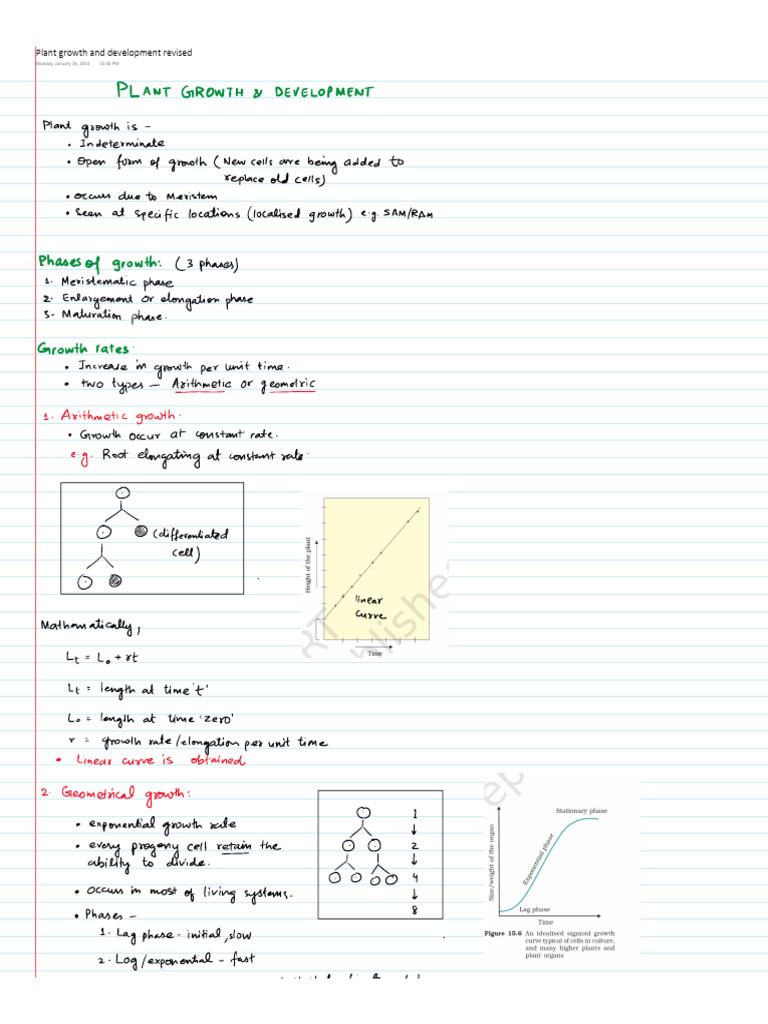 Plant growth and development revised
Monday, January 16, 2023 10:46 PM
PLANT GROWTH & DEVELOPMENT
Plant growth is -
• Indeterminate
• Open form of growth (New cells are being added to
replace old cells)
• occurs due to Meristem
• Seen at specific locations (localised growth) e.g. SAM/RAM
Phases of growth: (3 phases)
1. Meristematic phase
2. Enlargement or elongation phase
3- Maturation phase.
Growth rates.
• Increase in growth per unit time.
• two types - Arithmetic or geometric
1. Arithmetic growth.
• Growth occur at constant rate.
e.g. Root elongating at constant rate.
(differentiated
cell)
Height of the plant
linear
curve
Time
Mathematically,
Lt = L₀ + rt
Lt = length at time 't'
L₀ = length at time 'zero'
r = growth rate/elongation per unit time
• Linear curve is obtained
2. Geometrical growth:
• exponential growth rate
• every progeny cell retain the
ability to divide.
• occurs in most of living systems.
• Phases -
1. Lag phase - initial, slow
2. Log/exponential - fast
1
2
4
8
Size/weight of the organ
Stationary phase
Exponential phase
Lag phase
Time
Figure 15.6 An idealised sigmoid growth
curve typical of cells in culture,
and many higher plants and
plant organs